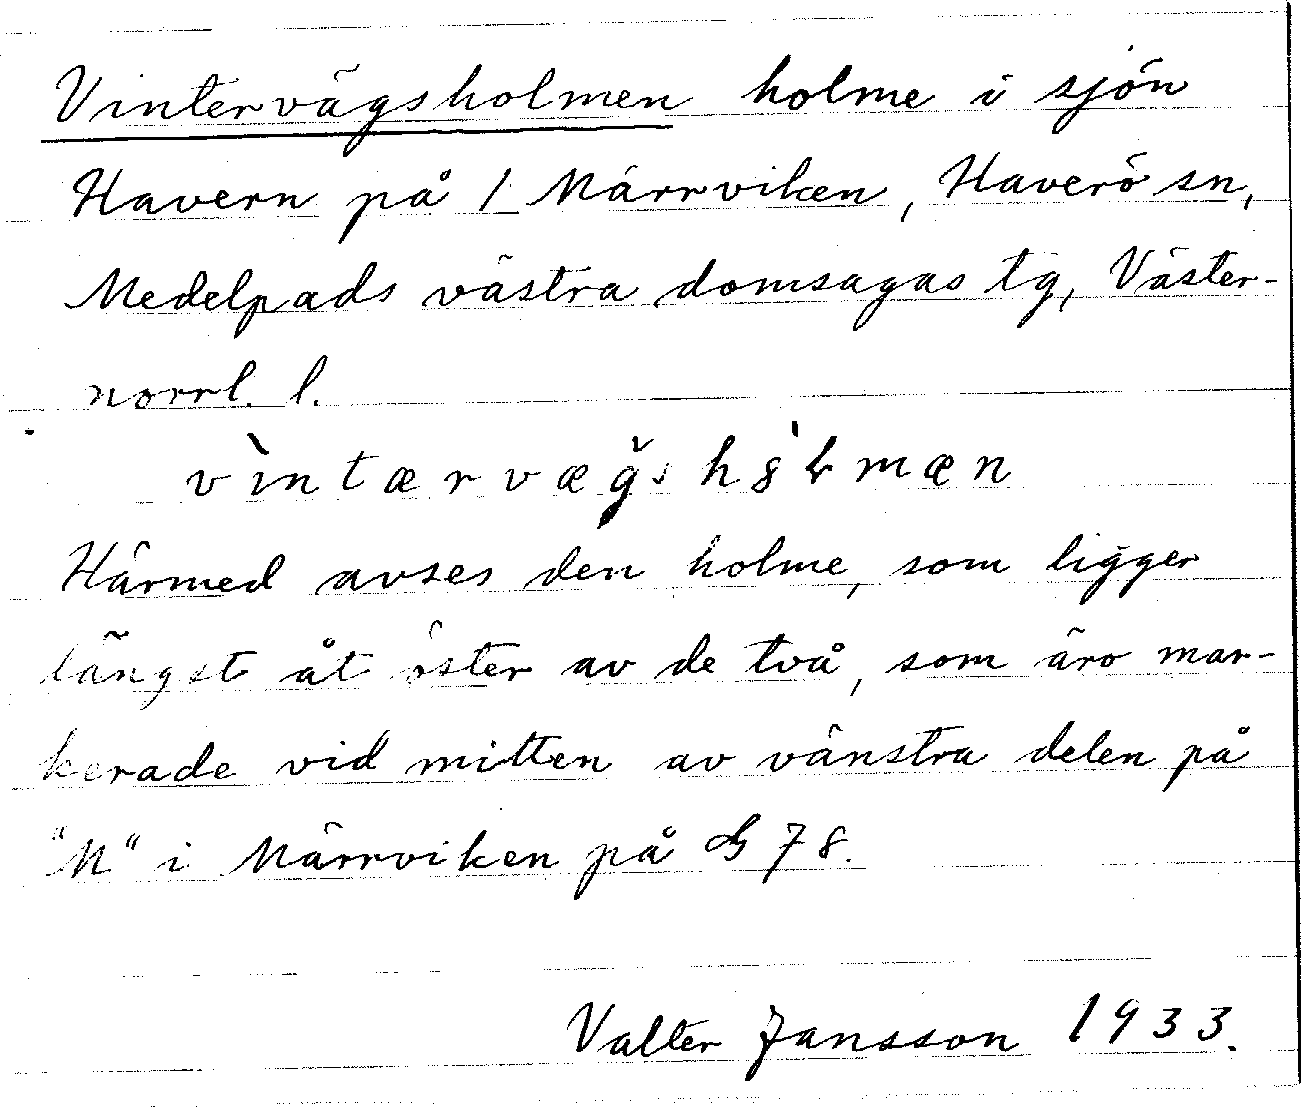 Vintervägsholmen holme i sjön
Havern på 1 Märrviken, Haverö sn,
Medelpads västra domsagas tg, Väster-
norrl. l.
vìntærvæğs hȣ̀ɫmæn
Härmed avses den holme, som ligger
längst åt öster av de två, som äro mar-
kerade vid mitten av vänstra delen på
"M" i Märrviken på G 78.
Valter Jansson 1933.